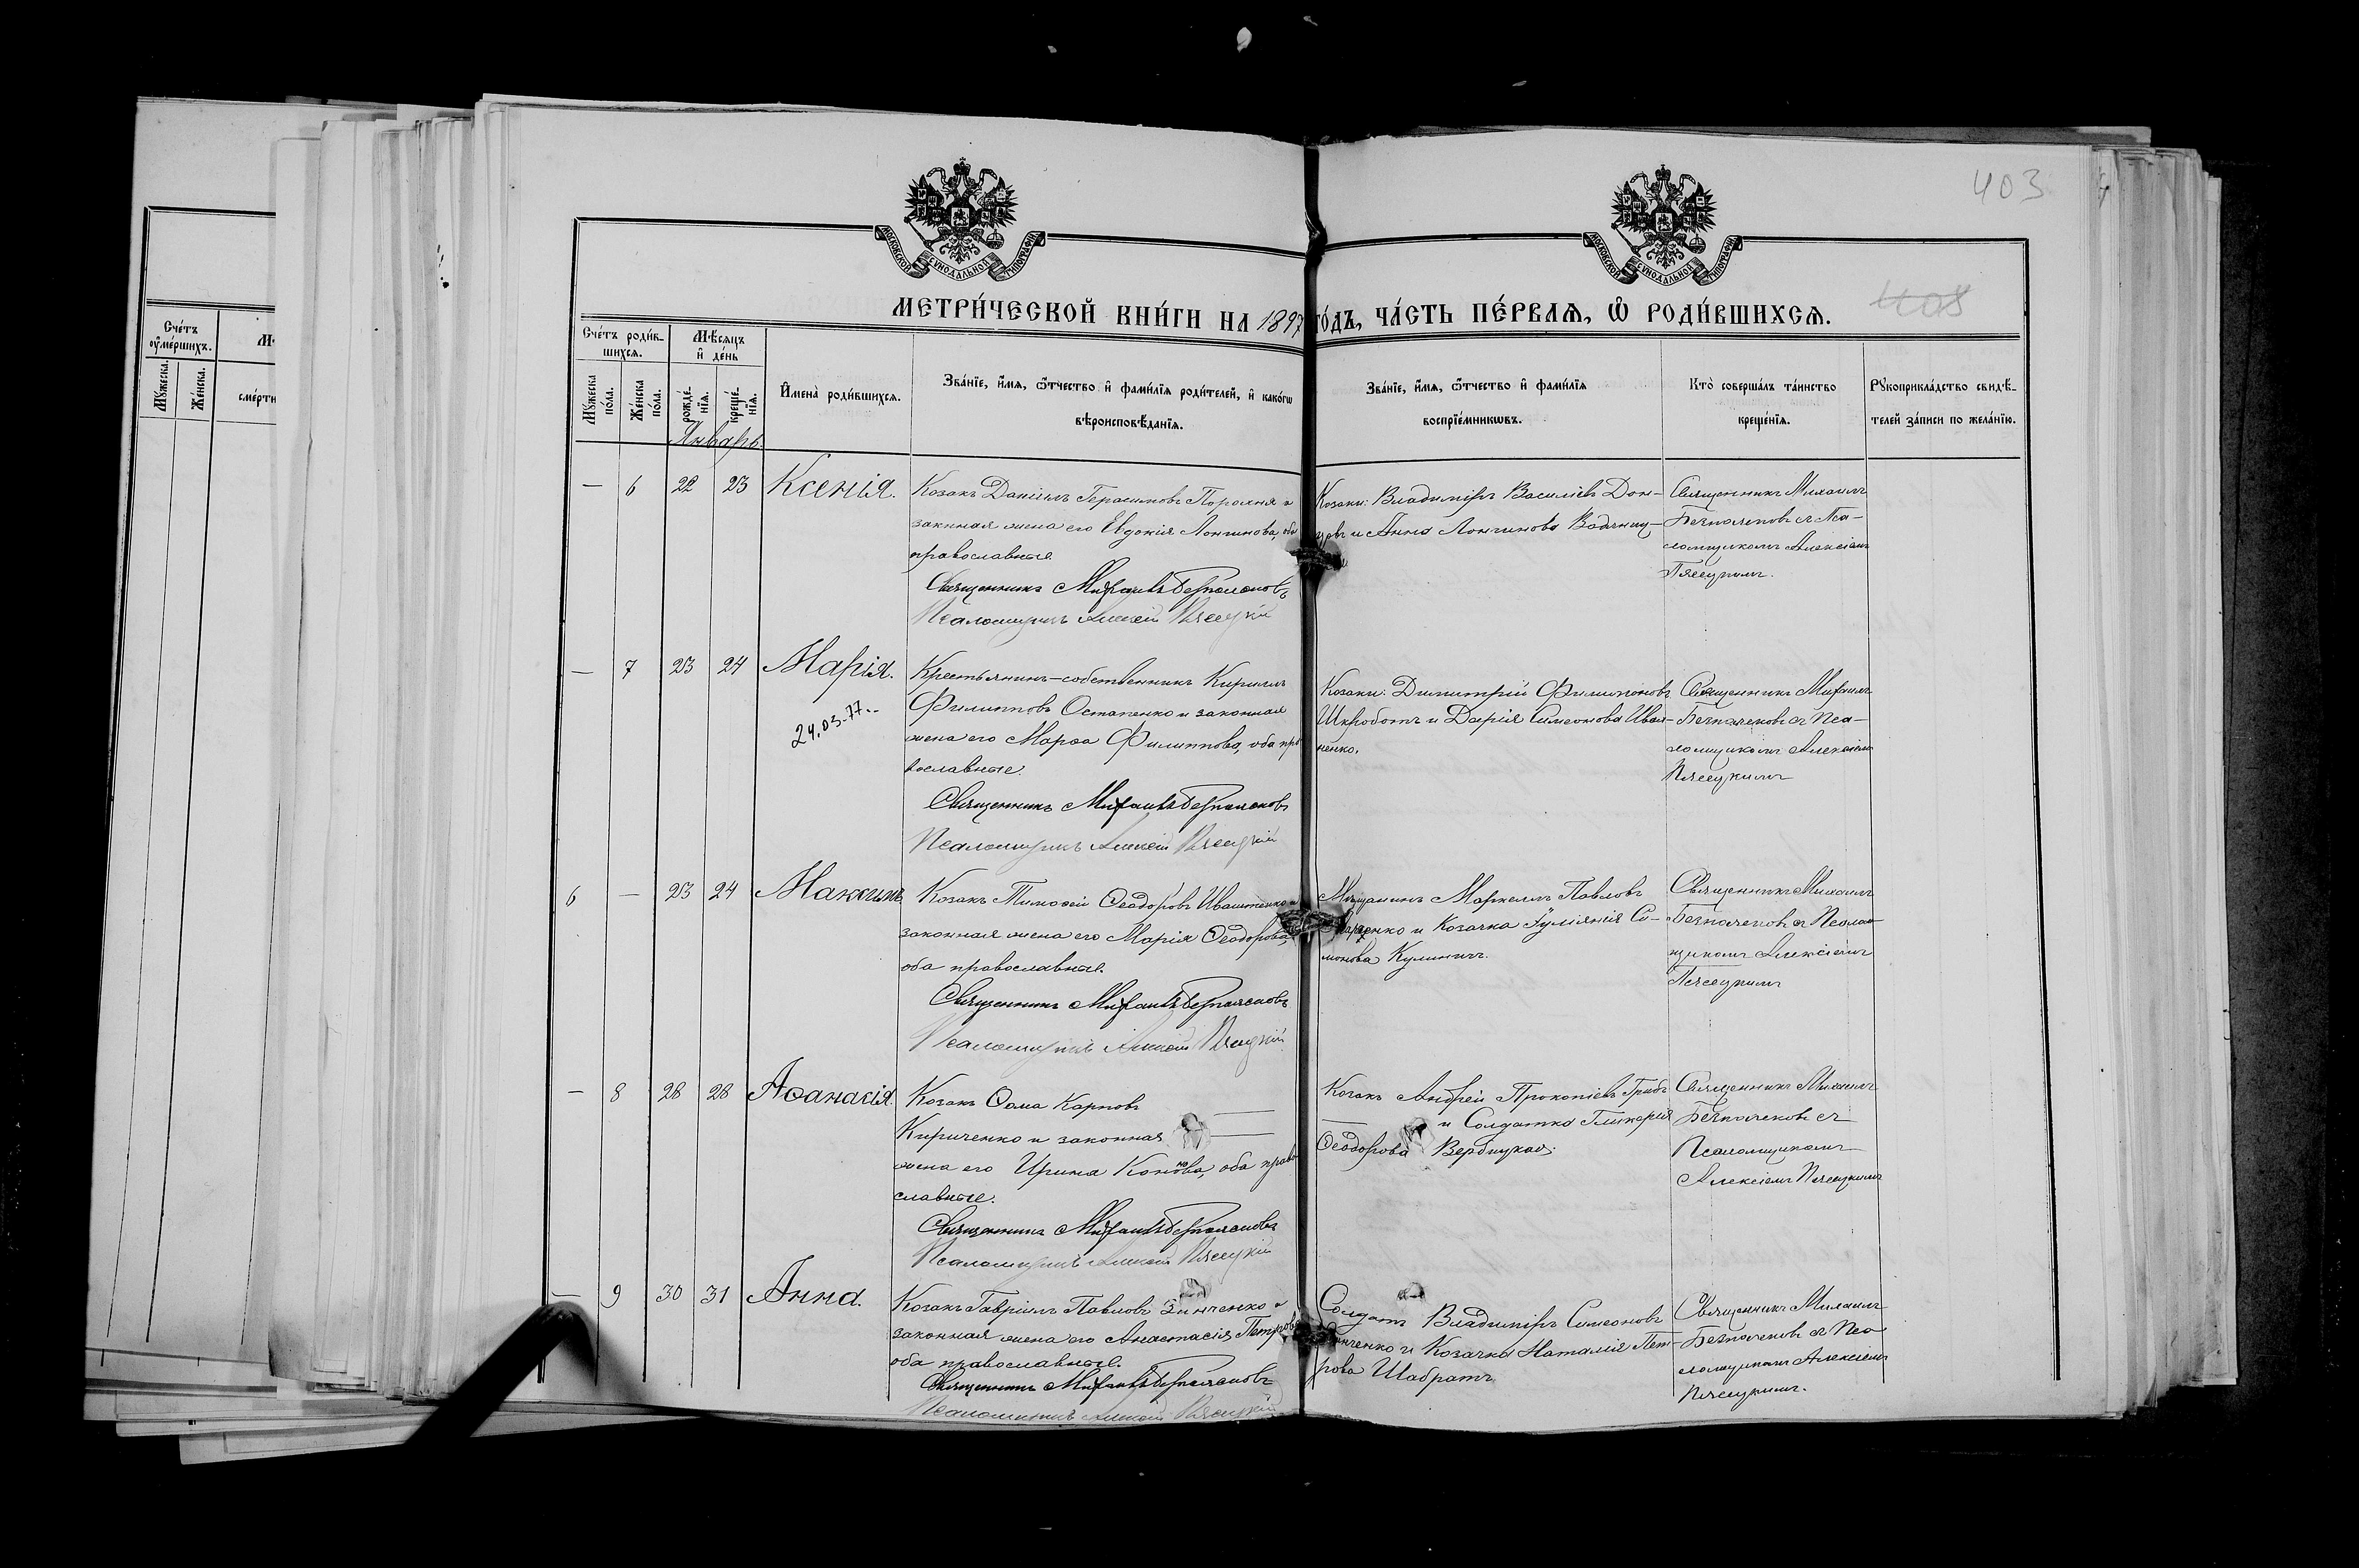 403
МОСКОВСКОЙ СУНОДАЛЬНОЙ ТИПОГРАФІИ
МОСКОВСКОЙ СУНОДАЛЬНОЙ ТИПОГРАФІИ
МЕТРИ́ЧЕСКОЙ КНИ́ГИ НА 1897 ГО́ДЪ, ЧА́СТЬ ПЕ́РВАЯ, Ѡ РОДИ́ВШИХСЯ.
403
Сче́тъ оу҆ме́ршихъ.
Мꙋ́жеска.
Же́нска.
сме́рти
Сче́тъ роди́в-
шихся.
Мѣ́сяцъ
и҆ де́нь
Мꙋ́жеска по́ла.
Же́нска по́ла.
рожде́-нїя.
креще́-нїя.
И҆мена̀ роди́вшихся.
Зва́нїе, и҆́мя, ѻ҆́тчество и҆ фами́лїя роди́телей, и҆ како́гѡ
вѣроисповѣ́данїя.
Зва́нїе, и҆́мя, ѻ҆́тчество и҆ фами́лїя
воспрїе́мникѡвъ.
Кто̀ соверша́лъ та́инство
креще́нїя.
Рꙋкоприкла́дство свидѣ́-
телей за́писи по жела́нїю.
Январь.
— 6 22 23 Ксенія.
Козакъ Даніилъ Герасимовъ Порохня и
законная жена его Евдокія Лонгинова, оба
православные.
Священникъ Михаилъ Безпалчевъ
Псаломщикъ Алексій Пясецкій
Козаки: Владиміръ Василіевъ Дон-
цовъ и Анна Лонгинова
Священникъ Михаилъ
съ Пса-
ломщикомъ Алексіемъ
Пясецкимъ.
— 7 23 24 Марія.
24.03.77..
Крестьянинъ-собственникъ Кириллъ
Филипповъ Остапенко и законная
жена его Марѳа Филиппова, оба пра
вославные.
Священникъ Михаилъ
Псаломщикъ Алексій Пясецкій
Козаки: Димитрій Филимоновъ
Шкроботъ и Дарія Симеонова Ива-
ненко.
Священникъ Михаилъ
съ Пса-
ломщикомъ Алексіемъ
Пясецкимъ
6 — 23 24 Максимъ
Козакъ Тимоѳей Ѳеодоровъ Ивашненко и
законная жена его Марія Ѳеодорова,
оба православные.
Священникъ Михаилъ
Псаломщикъ Алексій Пясецкій
Мѣщанинъ Маркеллъ Павловъ
и Козачка Іуліанія Си-
монова Кулиничъ.
Священникъ Михаилъ
съ Псалом-
щикомъ Алексіемъ
Пясецкимъ
— 8 28 28 Аѳанасія.
Козакъ Ѳома Карповъ
Кириченко и законная
жена его Ирина Кононова, оба право
славные.
Священникъ Михаилъ
Псаломщикъ Алексій Пясецкій
Козакъ Андрей Прокопіевъ Грибъ
и Солдатка Гликерія
Ѳеодорова Вербицкая.
Священникъ Михаилъ
съ
Псаломщикомъ
Алексіемъ Пясецкимъ
— 9 30 31 Анна.
Козакъ Гавріилъ Павловъ Зинченко и
законная жена его Анастасія Петрова
оба православные.
Священникъ Михаилъ
Псаломщикъ Алексій Пясецкій
Солдатъ Владиміръ Симеоновъ
и Козачка Наталія Пет-
рова Шабратъ
Священникъ Михаилъ
съ Пса
ломщикомъ Алексіемъ
Пясецкимъ.